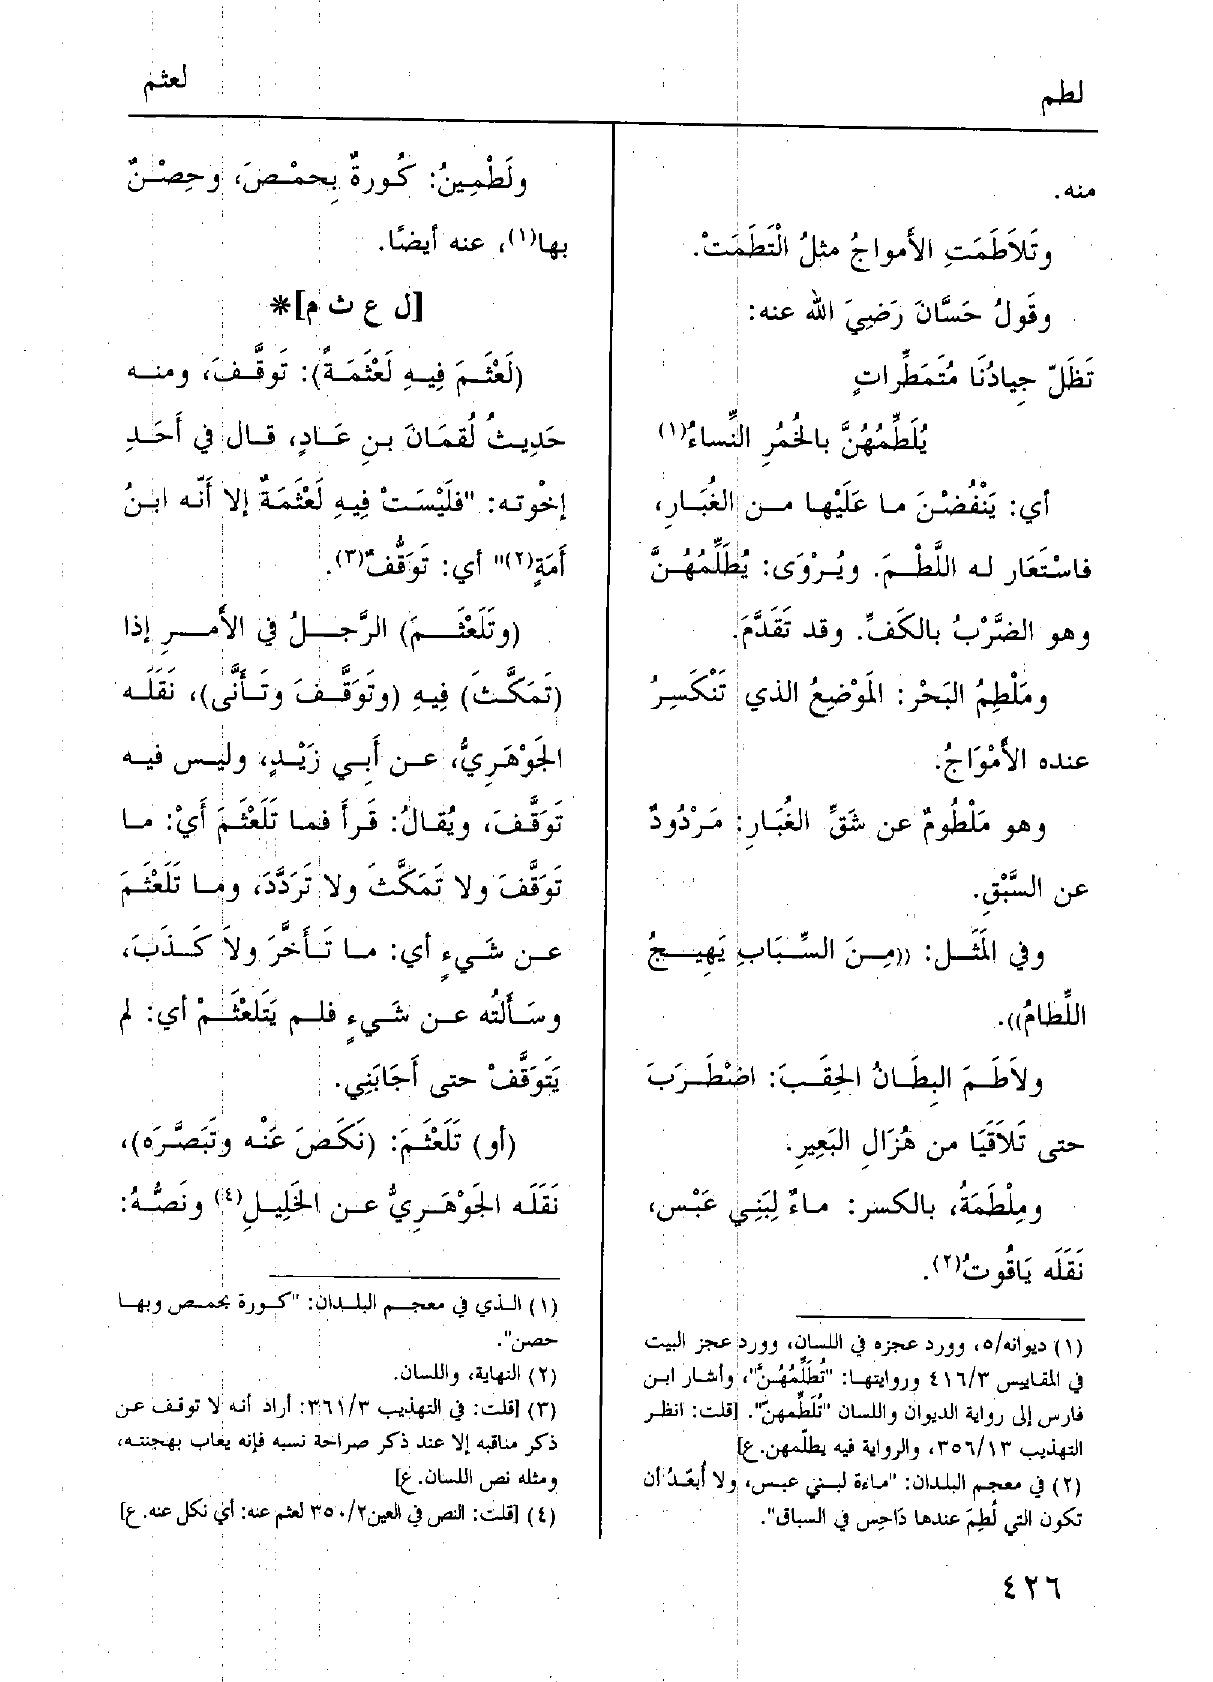 لطم
لعثم
منه.
وتَلاَطَمَتِ الأَمواجُ مثلُ الْتَطَمَتْ.
وقَولُ حَسَّانَ رَضِيَ الله عنه:
تَظَلّ جِيادُنَا مُتَمَطِّراتٍ
يُلَطِّمُهُنَّ بالخُمُرِ النِّساءُ(١)
أي: يَنْفُضْنَ ما عَلَيْها من الغُبَارِ،
فاسْتَعَار له اللَّطْمَ. ويُرْوَى: يُطَلِّمُهُنَّ
وهو الضَّرْبُ بالكَفِّ. وقد تَقَدَّمَ.
ومَلْطِمُ البَحْر: المَوْضِعُ الذي تَنْكَسِرُ
عنده الأَمْوَاجُ.
وهو مَلْطُومٌ عن شَقِّ الغُبَارِ: مَرْدُودٌ
عن السَّبْقِ.
وفي المَثَل: ((مِنَ السِّبَابِ يَهِيجُ
اللِّطامُ)).
ولاَطَمَ البِطَانُ الحِقَبَ: اضْطَرَبَ
حتى تَلاَقَيَا من هُزَالِ البَعِيرِ.
ومِلْطَمَةُ، بالكسر: ماءٌ لِبَنِي عَبْس،
نَقَلَه يَاقُوتُ(٢).
(١) ديوانه/٥، وورد عجزه في اللسان، وورد عجز البيت
في المقاييس ٤١٦/٣ وروايتها: "تُطَلِّمُهُنَّ"، وأشار ابن
فارس إلى رواية الديوان واللسان "تُلَطِّمهنّ". [قلت: انظر
التهذيب ٣٥٦/١٣، والرواية فيه يطلّمهن. ع]
(٢) في معجم البلدان: "ماءة لبني عبس، ولا أُبعّدُ أن
تكون التي لُطِمَ عندها دَاحِس في السباق".
ولَطْمِينُ: كُورةٌ بِحمْصَ، وحِصْنٌ
بها(١)، عنه أيضًا.
[ل ع ث م]*
(لَعْثَمَ فِيهِ لَعْثَمَةً): تَوقَّفَ، ومنه
حَدِيثُ لُقمَانَ بنِ عَادٍ، قال في أَحَدِ
إخْوته: "فلَيْسَتْ فِيهِ لَعْثَمَةٌ إلا أَنّه ابنُ
أَمَةٍ(٢)" أي: تَوَقُّفٌ(٣).
(وتَلَعْثَمَ) الرَّجلُ في الأَمرِ إذا
(تَمَكَّثَ) فِيهِ (وتَوَقَّفَ وتَأَنَّى)، نَقَلَه
الجَوْهَرِيُّ، عن أَبي زَيْدٍ، وليس فيه
تَوقَّفَ، ويُقالُ: قَرأَ فما تَلَعْثَمَ أَيْ: ما
تَوقَّفَ ولا تَمَكَّثَ ولا تَرَدَّدَ، وما تَلَعْثَمَ
عن شَيءٍ أي: ما تَأَخَّرَ ولاَ كَذَبَ،
وسَأَلتُه عن شَيءٍ فلم يَتَلَعْثَمْ أي: لم
يَتَوَقَّفْ حتى أَجَابَنِي.
(أو) تَلَعْثَمَ: (نَكَصَ عَنْه وتَبَصَّرَه)،
نَقَلَه الجَوْهَرِيُّ عن الخَلِيلِ(٤) ونَصُّهُ:
(١) الذي في معجم البلدان: "كورة بحمص وبها
حصن".
(٢) النهاية، واللسان.
(٣) [قلت: في التهذيب ٣٦١/٣: أراد أنه لا توقف عن
ذكر مناقبه إلا عند ذكر صراحة نسبه فإنه يعاب بهجنته،
ومثله نص اللسان. ع]
(٤) [قلت: النص في العين٣٥٠/٢ لعثم عنه: أي نكل عنه. ع]
٤٢٦